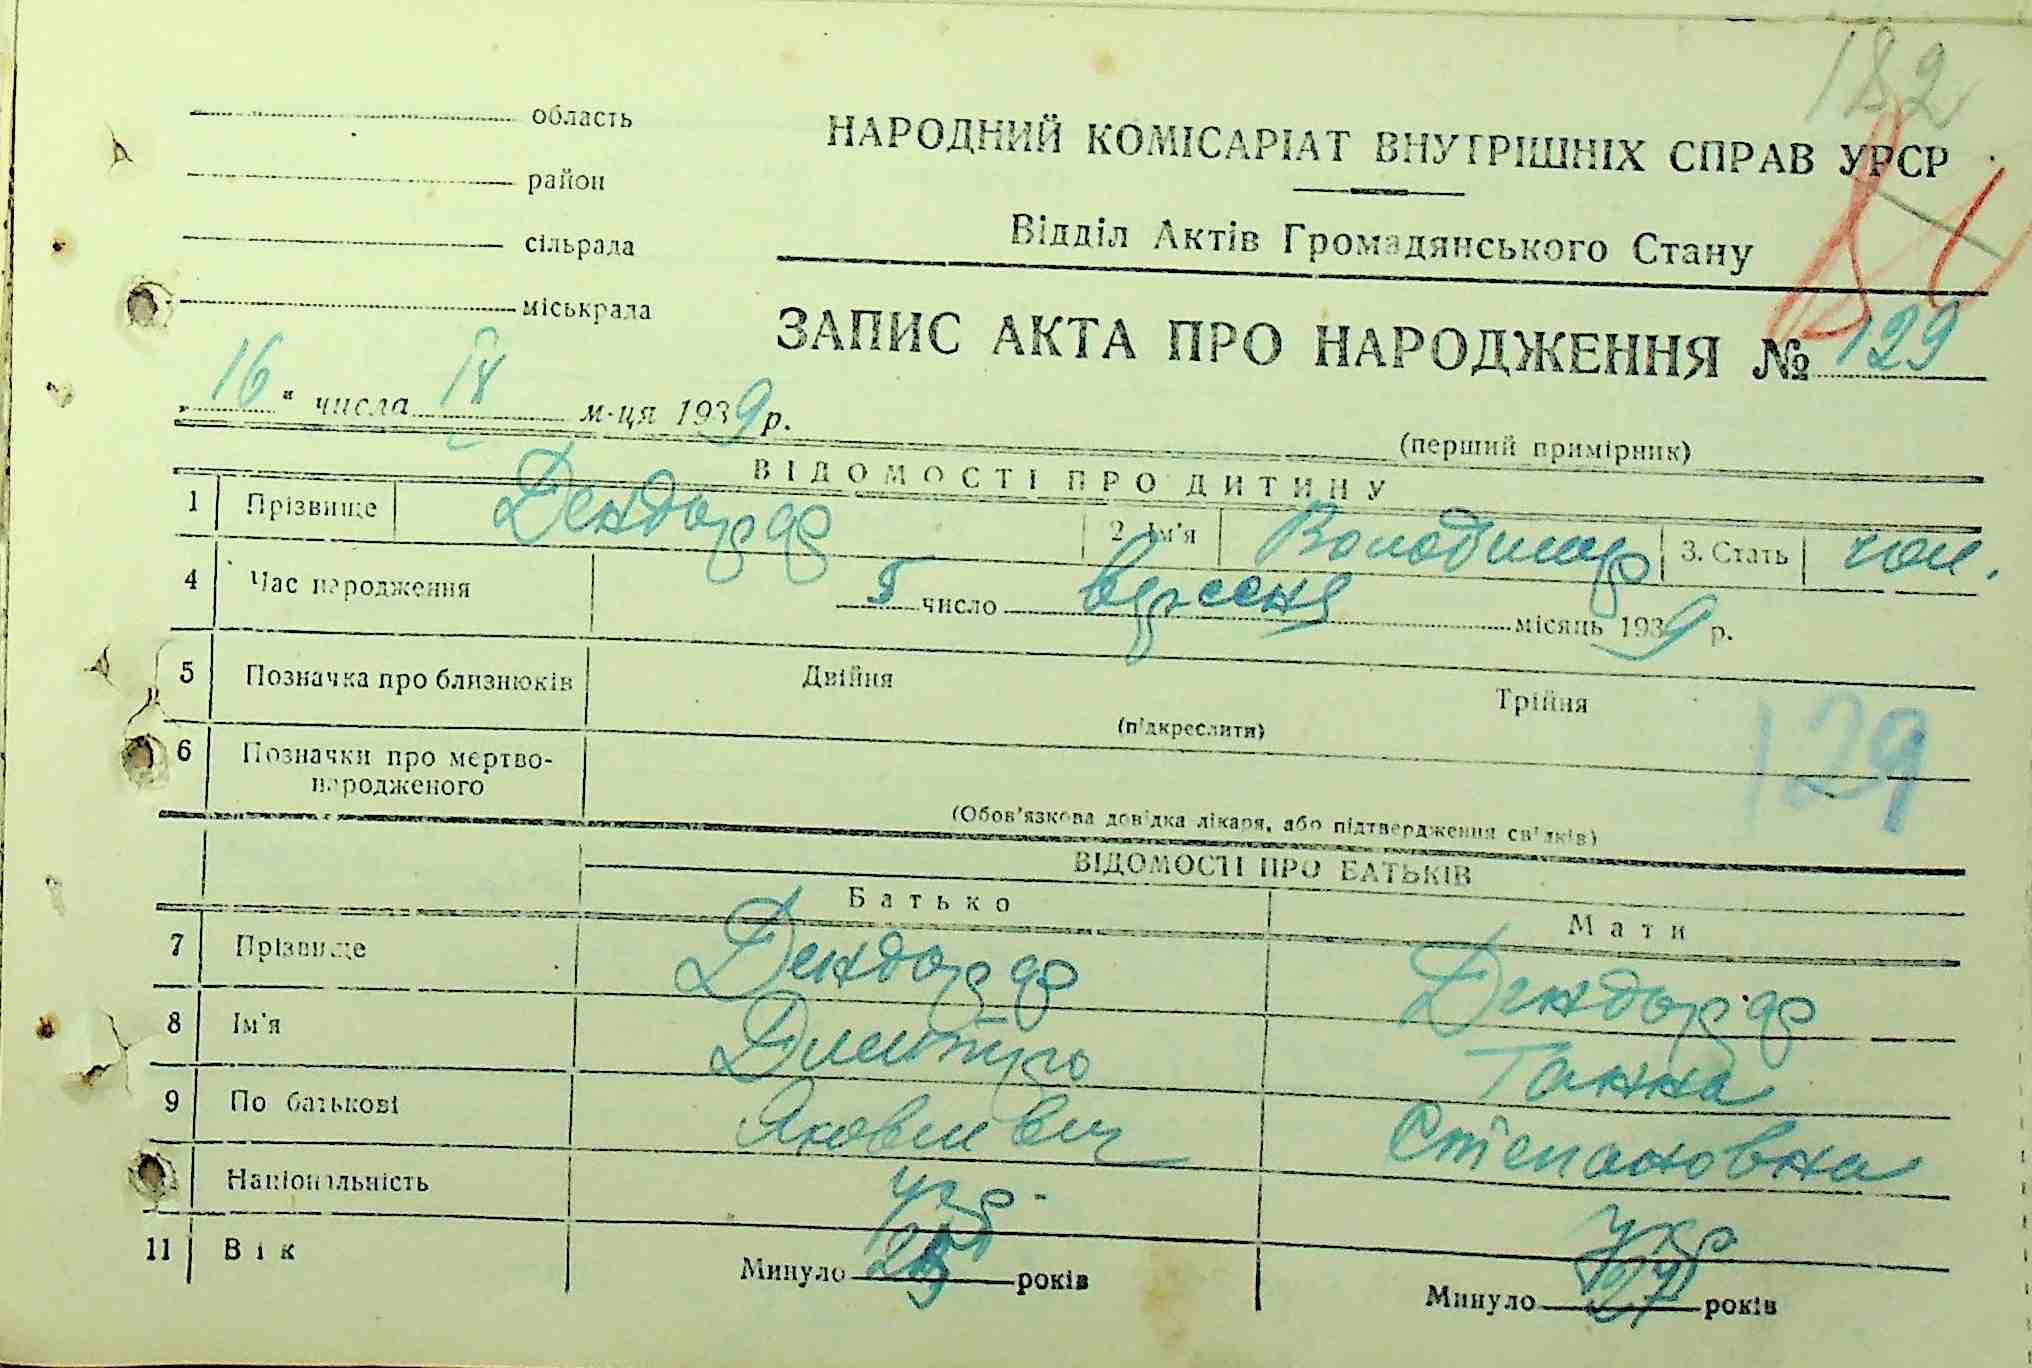 182
область
НАРОДНИЙ КОМІСАРІАТ ВНУТРІШНІХ СПРАВ УРСР
район
Відділ Актів Громадянського Стану
сільрада
міськрада
ЗАПИС АКТА ПРО НАРОДЖЕННЯ № 129
„16" числа м-ця 1939 р.
(перший примірник)
ВІДОМОСТІ ПРО ДИТИНУ
1 Прізвище 2 Ім'я Володимир 3. Стать чол.
4 Час народження 5 число вересня місяць 1939 р.
5 Позначка про близнюків Двійня Трійня
(підкреслити)
129
6 Позначки про мертво-
народженого
(Обов'язкова довідка лікаря, або підтвердження свідків)
ВІДОМОСТІ ПРО БАТЬКІВ
Батько Мати
7 Прізвище
8 Ім'я Дмитро Ганна
9 По батькові Яковлевич Степановна
Національність укр. укр
11 Вік Минуло років Минуло 27 років